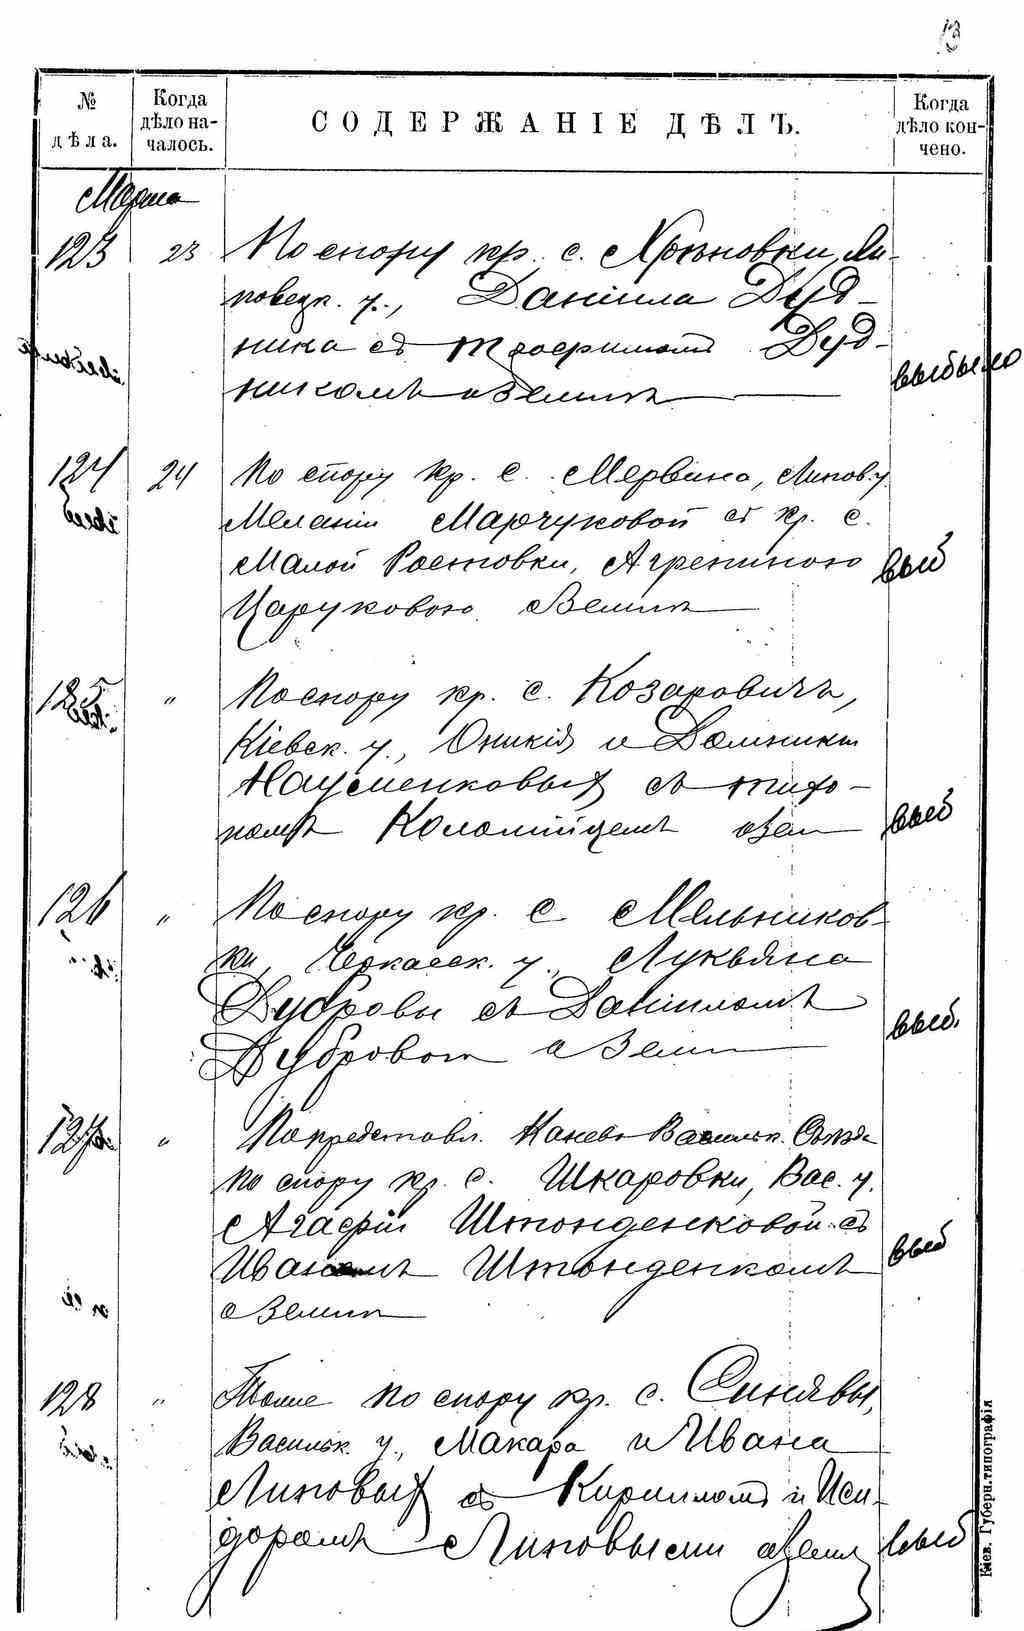 13
№ дѣла.
Когда дѣло началось.
СОДЕРЖАНІЕ ДѢЛЪ.
Когда дѣло кончено.
Марта
123 23 По спору кр. с. Хрѣновки, Ли-
повецк. у., Даніила Дуд-
ника съ Трофимомъ Дуд-
никомъ о землѣ
выбыло
124 24 По спору кр. с. Мервина, Липов. у.
Меланіи Марчуковой съ кр. с.
Малой Ростовки, Агрепиною
Царуковою о землѣ
выб
125 " По спору кр. с. Козаровичъ,
Кіевск. у., Оникія и Домникіи
Науменковыхъ съ Тихо-
номъ Коломійцемъ о зем
выб
126 " По спору кр. с. Мельников-
ки, Черкасск. у., Лукьяна
Дубровы съ Даніиломъ
Дубровою о земл
выб.
127 " По представл. Канев-Васильк. Съѣзда
по спору кр. с. Шкаровки, Вас. у.
Агафіи Штонденковой съ
Иваномъ Штонденкомъ
о землѣ
выб
128 " Тоже по спору кр. с. Синявы,
Васильк. у., Макара и Ивана
Липовыхъ съ Кирилломъ и Иси-
доромъ Липовыми о земл
выб
Кіев. Губерн. типографія